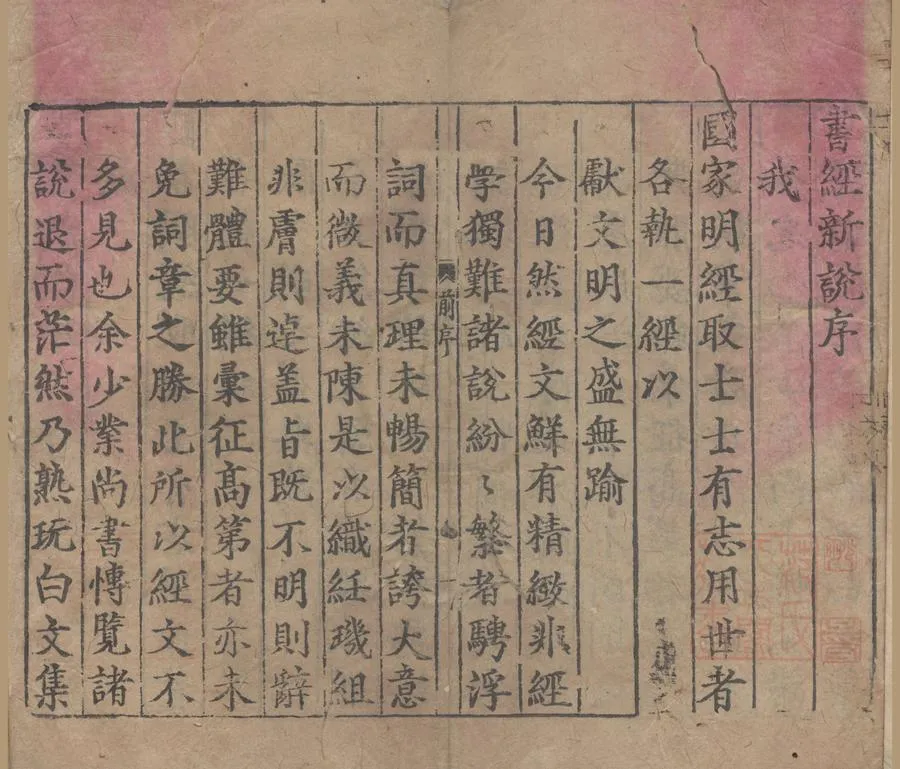 書經新說序
我
國家明經取士士有志用世者
各執一經以
獻文明之盛無踰
今日然經文鮮有精緻非經
學獨難諸說紛〻繁者騁浮
前序
一
詞而真理未暢簡者誇大意
而微義未陳是以織紝璣組
非膚則逴盖旨既不明則辭
難體要雖彙征高第者亦未
免詞章之勝此所以經文不
多見也余少業尚書愽覽諸
說退而茫然乃熟玩白文集